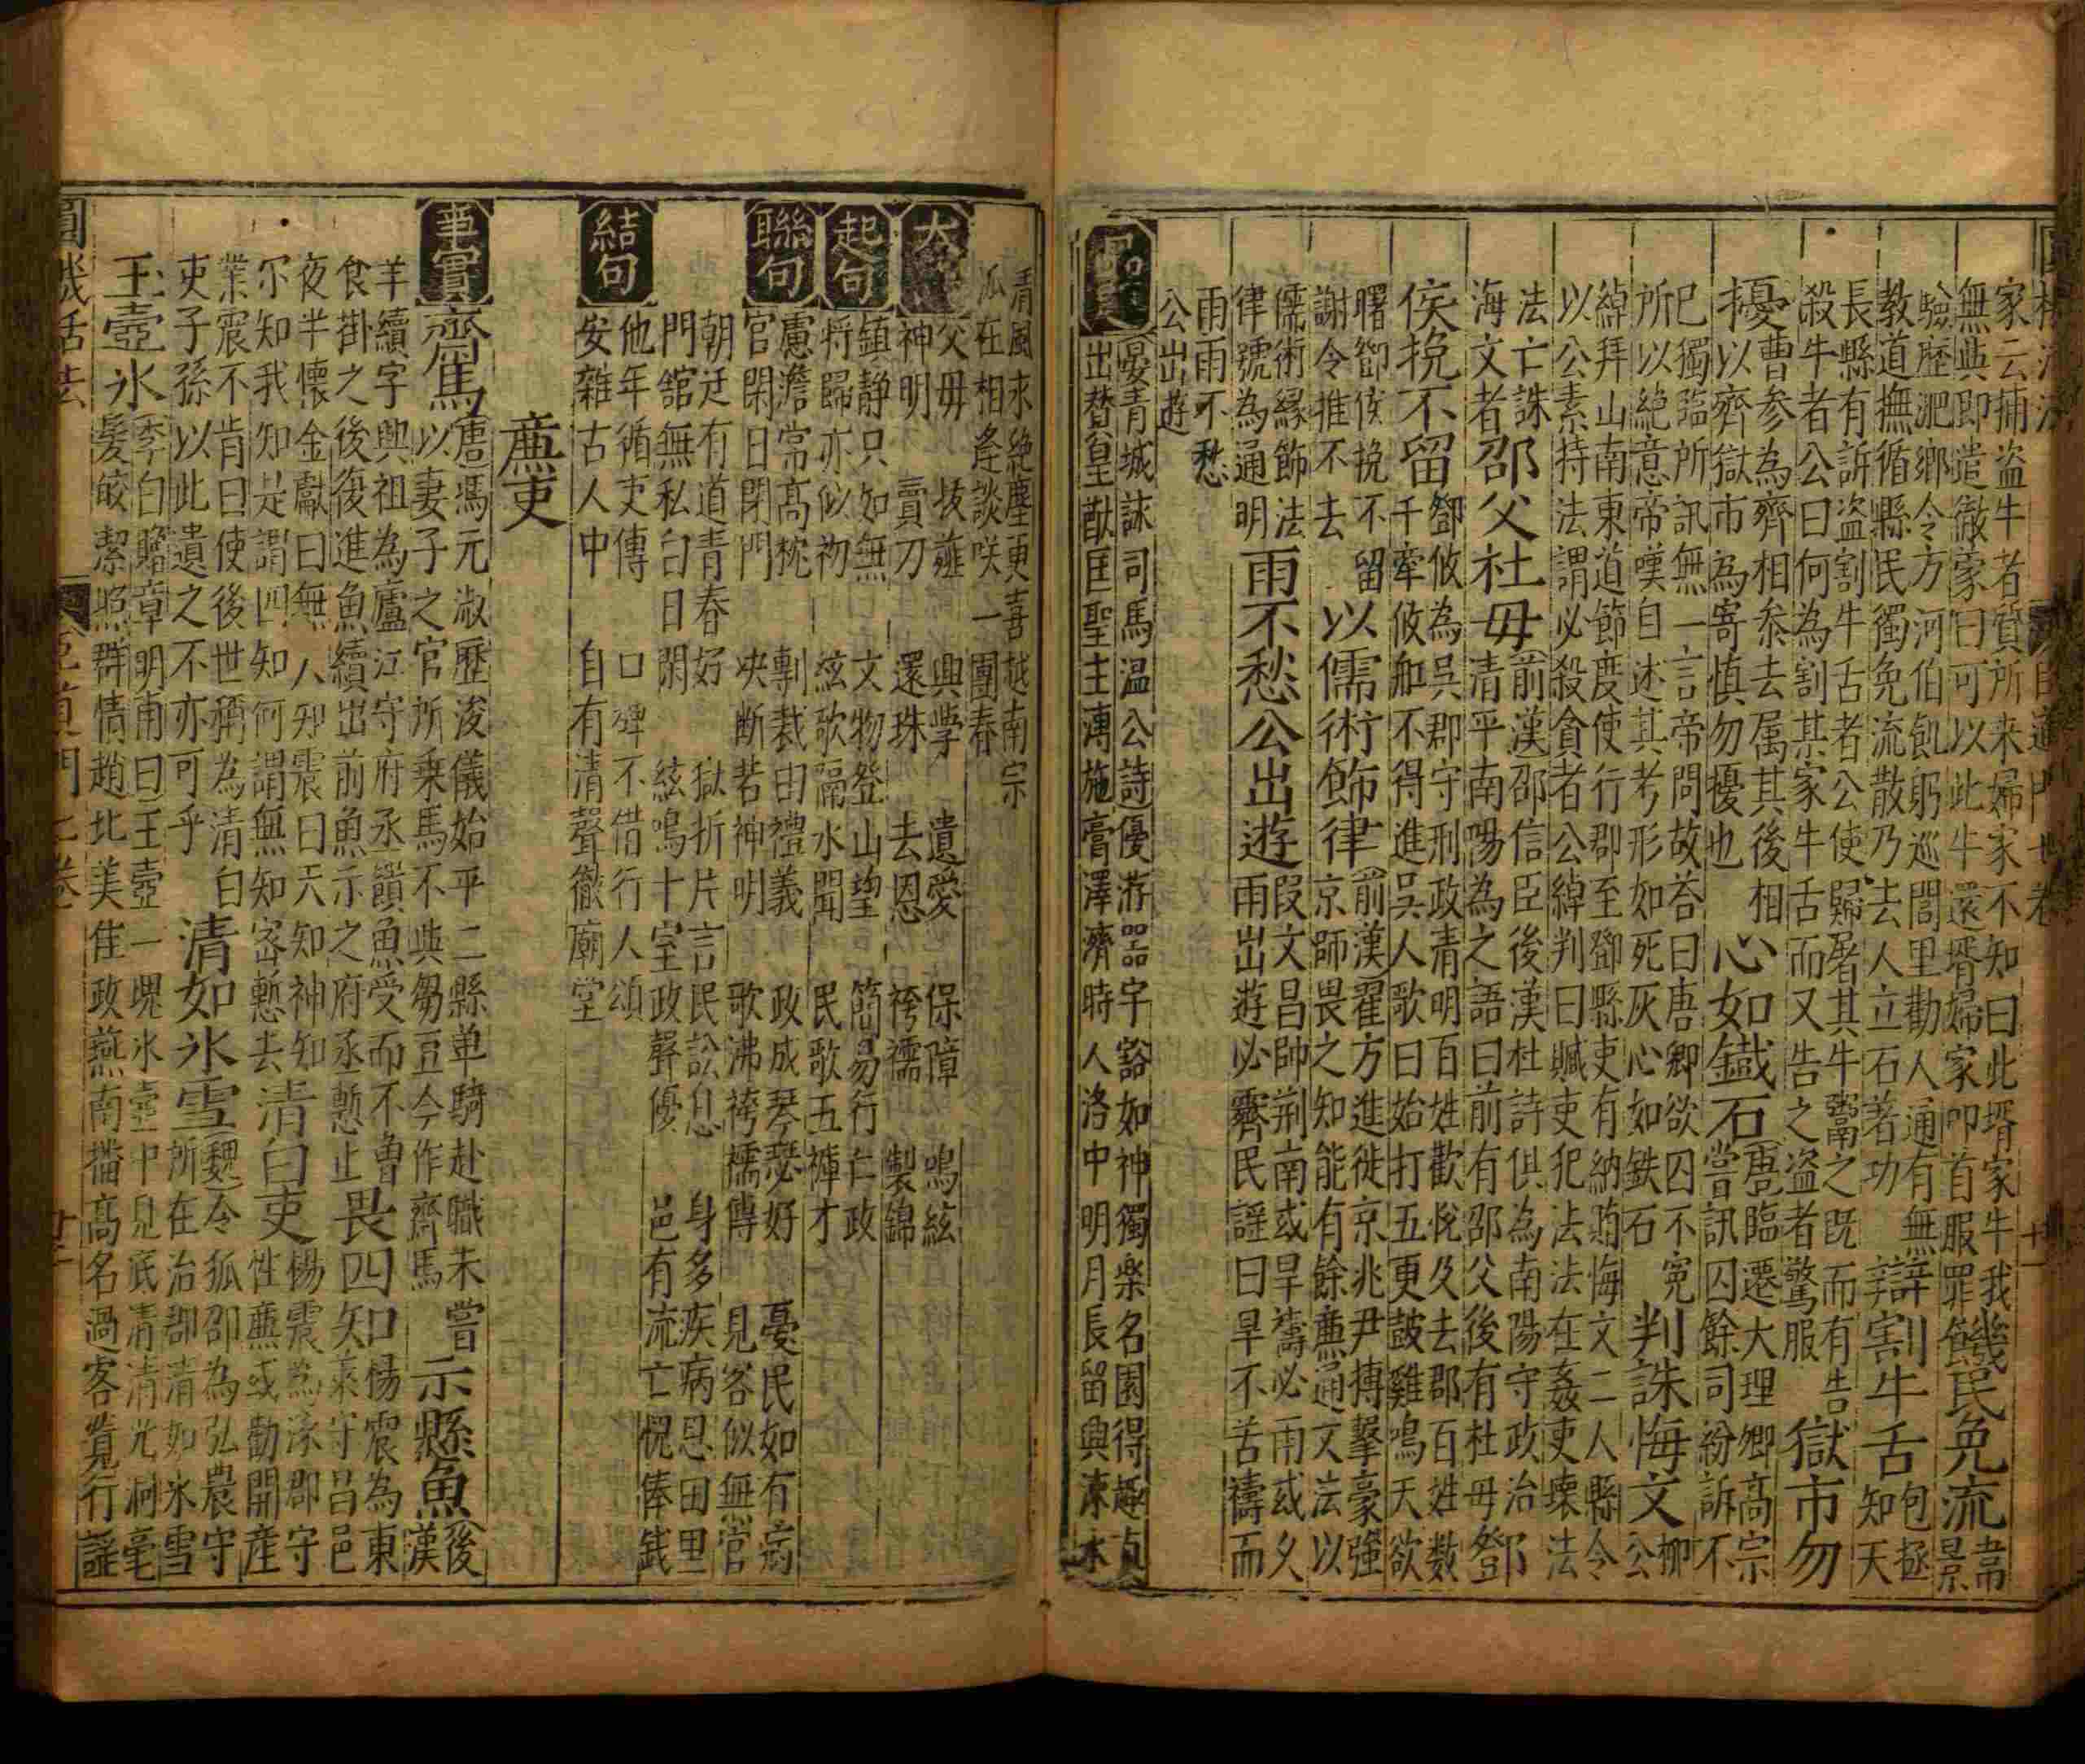 家云捕盗牛者質所来婦家不知曰此壻家牛我
無與即遣徹家曰可以此牛還壻婦家叩首服罪
饑民免流
韋
景
驗歷淝鄉令方河伯飢躬巡閭里勸人通有無
教道撫循縣民獨免流散乃去人立石著功
辯割牛舌
包拯
知天
長縣有訴盗割牛舌者公使歸屠其牛鬻之既而有告
殺牛者公曰何為割某家牛舌而又告之盗者驚服
獄市勿
擾
曹参為齊相叅去属其後相
以齊獄市為寄慎勿擾也
心如鐵石
唐臨遷大理卿高宗
嘗訊囚餘司紛訴不
已獨臨所訊無一言帝問故荅曰唐卿欲囚不寃
所以絶意帝嘆自述其考形如死灰心如鉄石
判誅悔文
柳
公
綽拜山南東道節度使行郡至鄧縣吏有納賄悔文二人縣令
以公素持法謂必殺貪者公綽判曰贓吏犯法法在姦吏壊法
法亡誅
海文者
邵父杜母
前漢邵信臣後漢杜詩俱為南陽守政治
清平南陽為之語曰前有邵父後有杜母
鄧
侯挽不留
鄧攸為吳郡守刑政清明百姓歡悅及去郡百姓数
千牽攸船不得進吳人歌曰始打五更鼓雞鳴天欲
曙鄧侯挽不留
謝令推不去
以儒術飾律
前漢翟方進徙京兆尹搏擊豪強
京師畏之知能有餘兼通文法以
儒術緣飾法
律號為通明
雨不愁公出遊
段文昌帥荆南或旱禱必雨或久
雨出遊必霽民謡曰旱不苦禱而
雨雨不愁
公出遊
晏青城詠司馬温公詩優游器宇谽如神獨楽名園得趣真
出賛皇猷匡聖主溥施膏澤濟時人洛中明月長留與涑水
清風求絶塵更喜越南宗
瓜在相逢談咲一團春
大
父母 抜薤 興學 遺愛 保障 鳴絃
神明 賣刀 還珠 去恩 袴襦 製錦
起句
鎮静只如無 文物登山望 簡易行仁政
将歸亦似初 絃歌隔水聞 民歌五褲才
聯句
慮澹常高枕 剸裁由禮義 政成琴瑟好 憂民如有病
官閑日閉門 决断若神明 歌沸袴襦傳 見客似無官
朝廷有道青春好 獄折片言民訟息 身多疾病思田里
門舘無私白日閑 絃鳴十室政聲優 邑有流亡愧俸錢
結句
他年循吏傳 口碑不借行人頌
安雜古人中 自有清聲徹廟堂
廉吏
事實
齊馬
唐馮元淑歷浚儀始平二縣单騎赴職未嘗
以妻子之官所乗馬不與芻豆令作齊馬
示懸魚
後
漢
羊續字興祖為廬江守府丞饋魚受而不魯
食掛之後復進魚續出前魚示之府丞慙止
畏四知
楊震為東
萊守昌邑
夜半懷金獻曰無人知震曰天知神知
尔知我知是謂四知何謂無知宻慙去
清白吏
楊震為涿郡守
性廉或勸開産
業震不肯曰使後世稱為清白
吏子孫以此遺之不亦可乎
清如氷雪
魏令狐邵為弘農守
所在治郡清如氷雪
玉壺氷
李白贈章明甫曰玉壺一塊氷壺中見底清清光洞毫
髮皎潔照群情趙北美佳政燕南播高名過客覽行謡
圓機活法